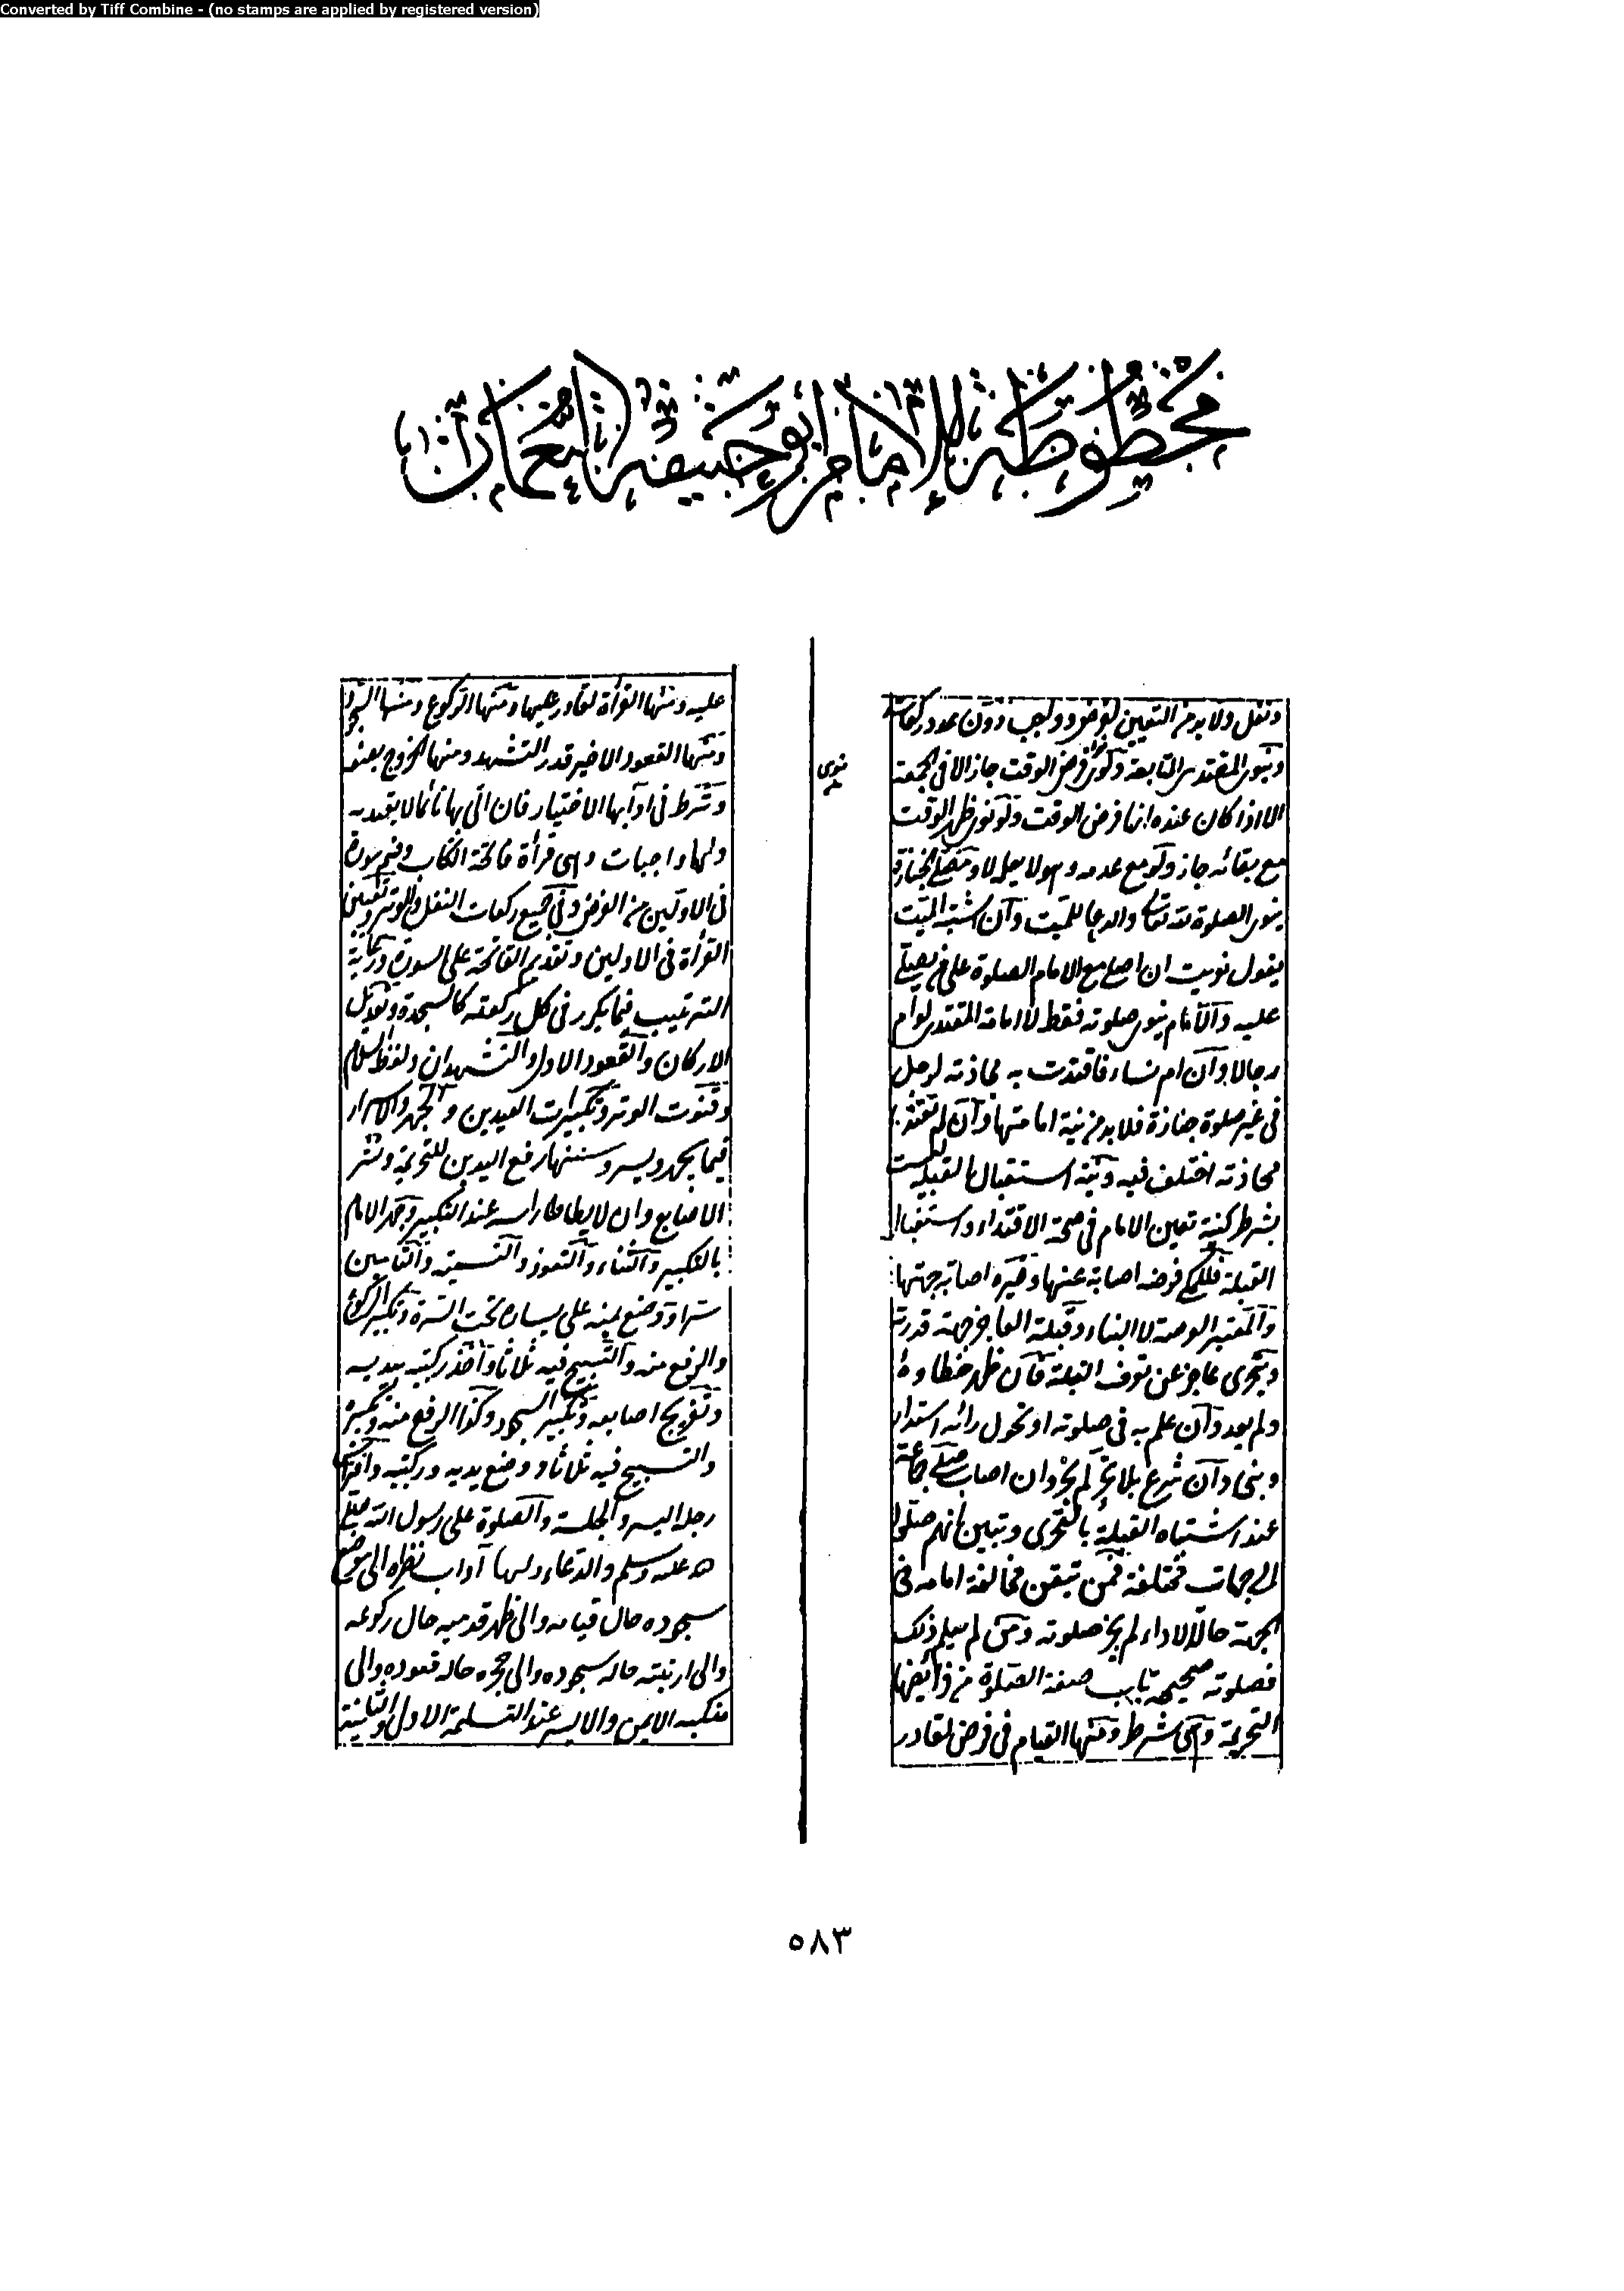 Converted by Tiff Combine - (no stamps are applied by registered version)
مخطوطة للإمام أبو حنيفة النعمان
ونفل ولا بد من التعيين لفرض وواجب دون عدد ركعاته
وينوى المقتدى المتابعة ولو نوى فرض الوقت جاز الا فى الجمعة
الا اذا كان عنده انها فرض الوقت ولو نوى ظهر الوقت
مع بقائه جاز ولو مع عدمه وهو لا يعلم لا ومصلى الجنازة
ينوى الصلوة لله تعالى والدعا للميت وان اشتبه الميت
يقول نويت ان اصلى مع الامام الصلوة على من يصلى
عليه والامام ينوى صلوته فقط لا امامة المقتدى لو ام
رجالا وان ام نساء فاقتدت به محاذته لرجل
فى غير صلوة جنازة فلا بد من نية امامتها وان لم تقتد
محاذته اختلف فيه ونية استقبال القبلة ليست
بشرط كنية تعين الامام فى صحة الاقتداء واستقبال
القبلة فللمكى فرضه اصابة عينها ولغيره اصابة جهتها
والمعتبر العرصة لا البناء وقبلة العاجز جهة قدرته
ويتحرى عاجز عن تعرف القبلة فان ظهر خطاوه
ولم يعد وان علم به فى صلوته او تحول رائه استدار
وبنى وان شرع بلا تحر لم يجز وان اصاب صلى جماعة
عند اشتباه القبلة بالتحرى وتبين انهم صلوا
الى جهات مختلفة فمن تيقن مخالفة امامه فى
الجهة حالة الاداء لم يجز صلوته ومن لم يعلم ذلك
فصلوته صحيحة باب صفة الصلوة من فرائضها
التحريمة وهى شرط ومنها القيام فى فرض لقادر
ينوى
عليه ومنها القرأة لقادر عليها ومنها الركوع ومنها السجود
ومنها القعود الاخير قدر التشهد ومنها الخروج بصنعه
وشرط فى ادآئها الاختيار فان اتى بها نائما لا يعتد به
ولها واجبات وهى قرأة فاتحة الكتاب وضم سورة
فى الاوليين من الفرض وفى جميع ركعات النفل والوتر وتعيين
القرأة فى الاولين وتقديم الفاتحة على السورة ورعاية
الترتيب فيما يكرر فى كل ركعة كالسجدة وتعديل
الاركان والقعود الاول والتشهدان ولفظ السلام
وقنوت الوتر وتكبيرات العيدين والجهر والاسرار
فيما يجهر ويسر وسننها رفع اليدين للتحريمة ونشر
الاصابع وان لا يطاطا راسه عند التكبير وجهر الامام
بالتكبير والثناء والتعوذ والتسمية والتامين
سرا ووضع يمينه على يساره تحت السرة وتكبير الركوع
والرفع منه والتسبيح فيه ثلاثا واخذ ركبتيه بيديه
وتفريج اصابعه وتكبير السجود وكذا الرفع منه وتكبيره
والتسبيح فيه ثلاثا ووضع يديه وركبتيه وافتراش
رجله اليسرى والجلسة والصلوة على رسول الله صلى
الله عليه وسلم والدعاء ولها آداب نظره الى موضع
سجوده حال قيامه والى ظهر قدميه حال ركوعه
والى ارنبته حالة سجوده والى حجره حالة قعوده والى
منكبه الايمن والايسر عند التسليمة الاولى والثانية
٥٨٣